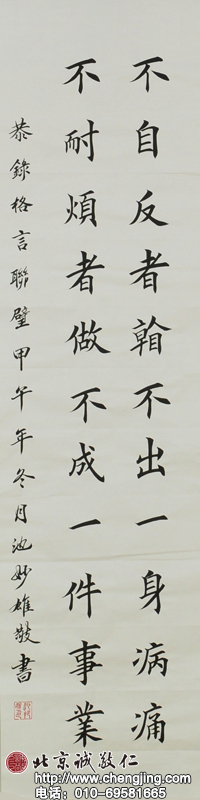 不自反者看不出一身病痛
不耐煩者做不成一件事業
恭錄格言聯壁甲午年冬月池妙雄敬書
北京誠敬仁
www.chengjing.com
电话：010-69581665